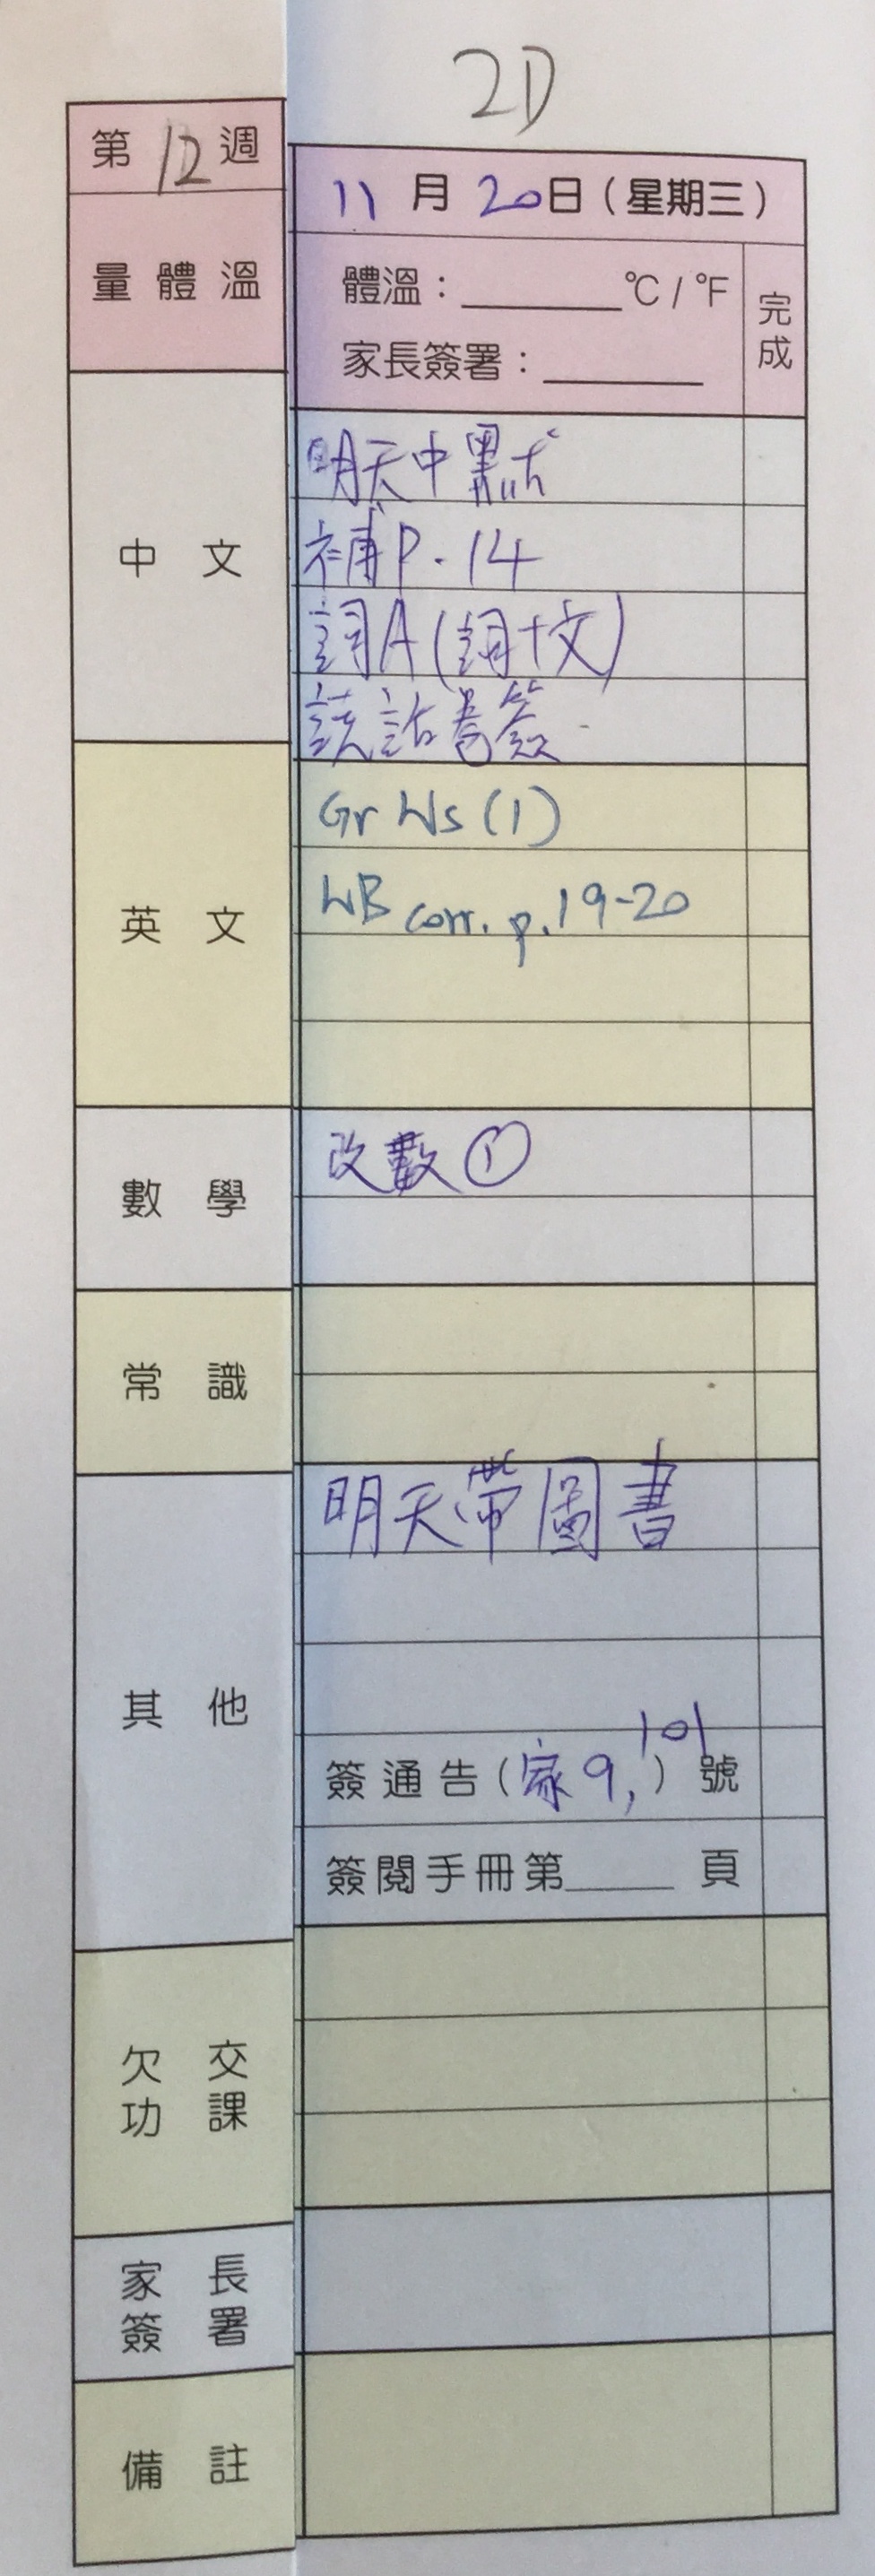 2D
第12週
11月20日(星期三)
量體溫
體溫：______°C / °F
完成
家長簽署：______
中文
明天中默
補P.14
詞A(詞+文)
說話卷簽
英文
Gr Ws (1)
WB corr. p.19-20
數學
改數①
常識
其他
明天帶圖書
簽通告(家9, 101)號
簽閱手冊第____頁
欠交功課
家長簽署
備註